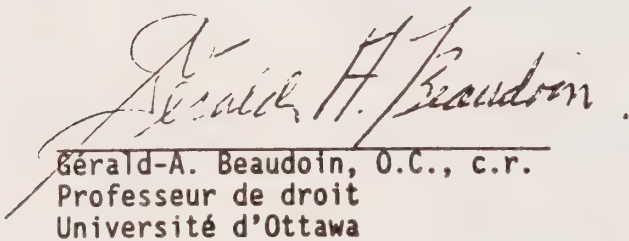 Gérald A. Beaudoin.
Gérald-A. Beaudoin, O.C., c.r.
Professeur de droit
Université d'Ottawa